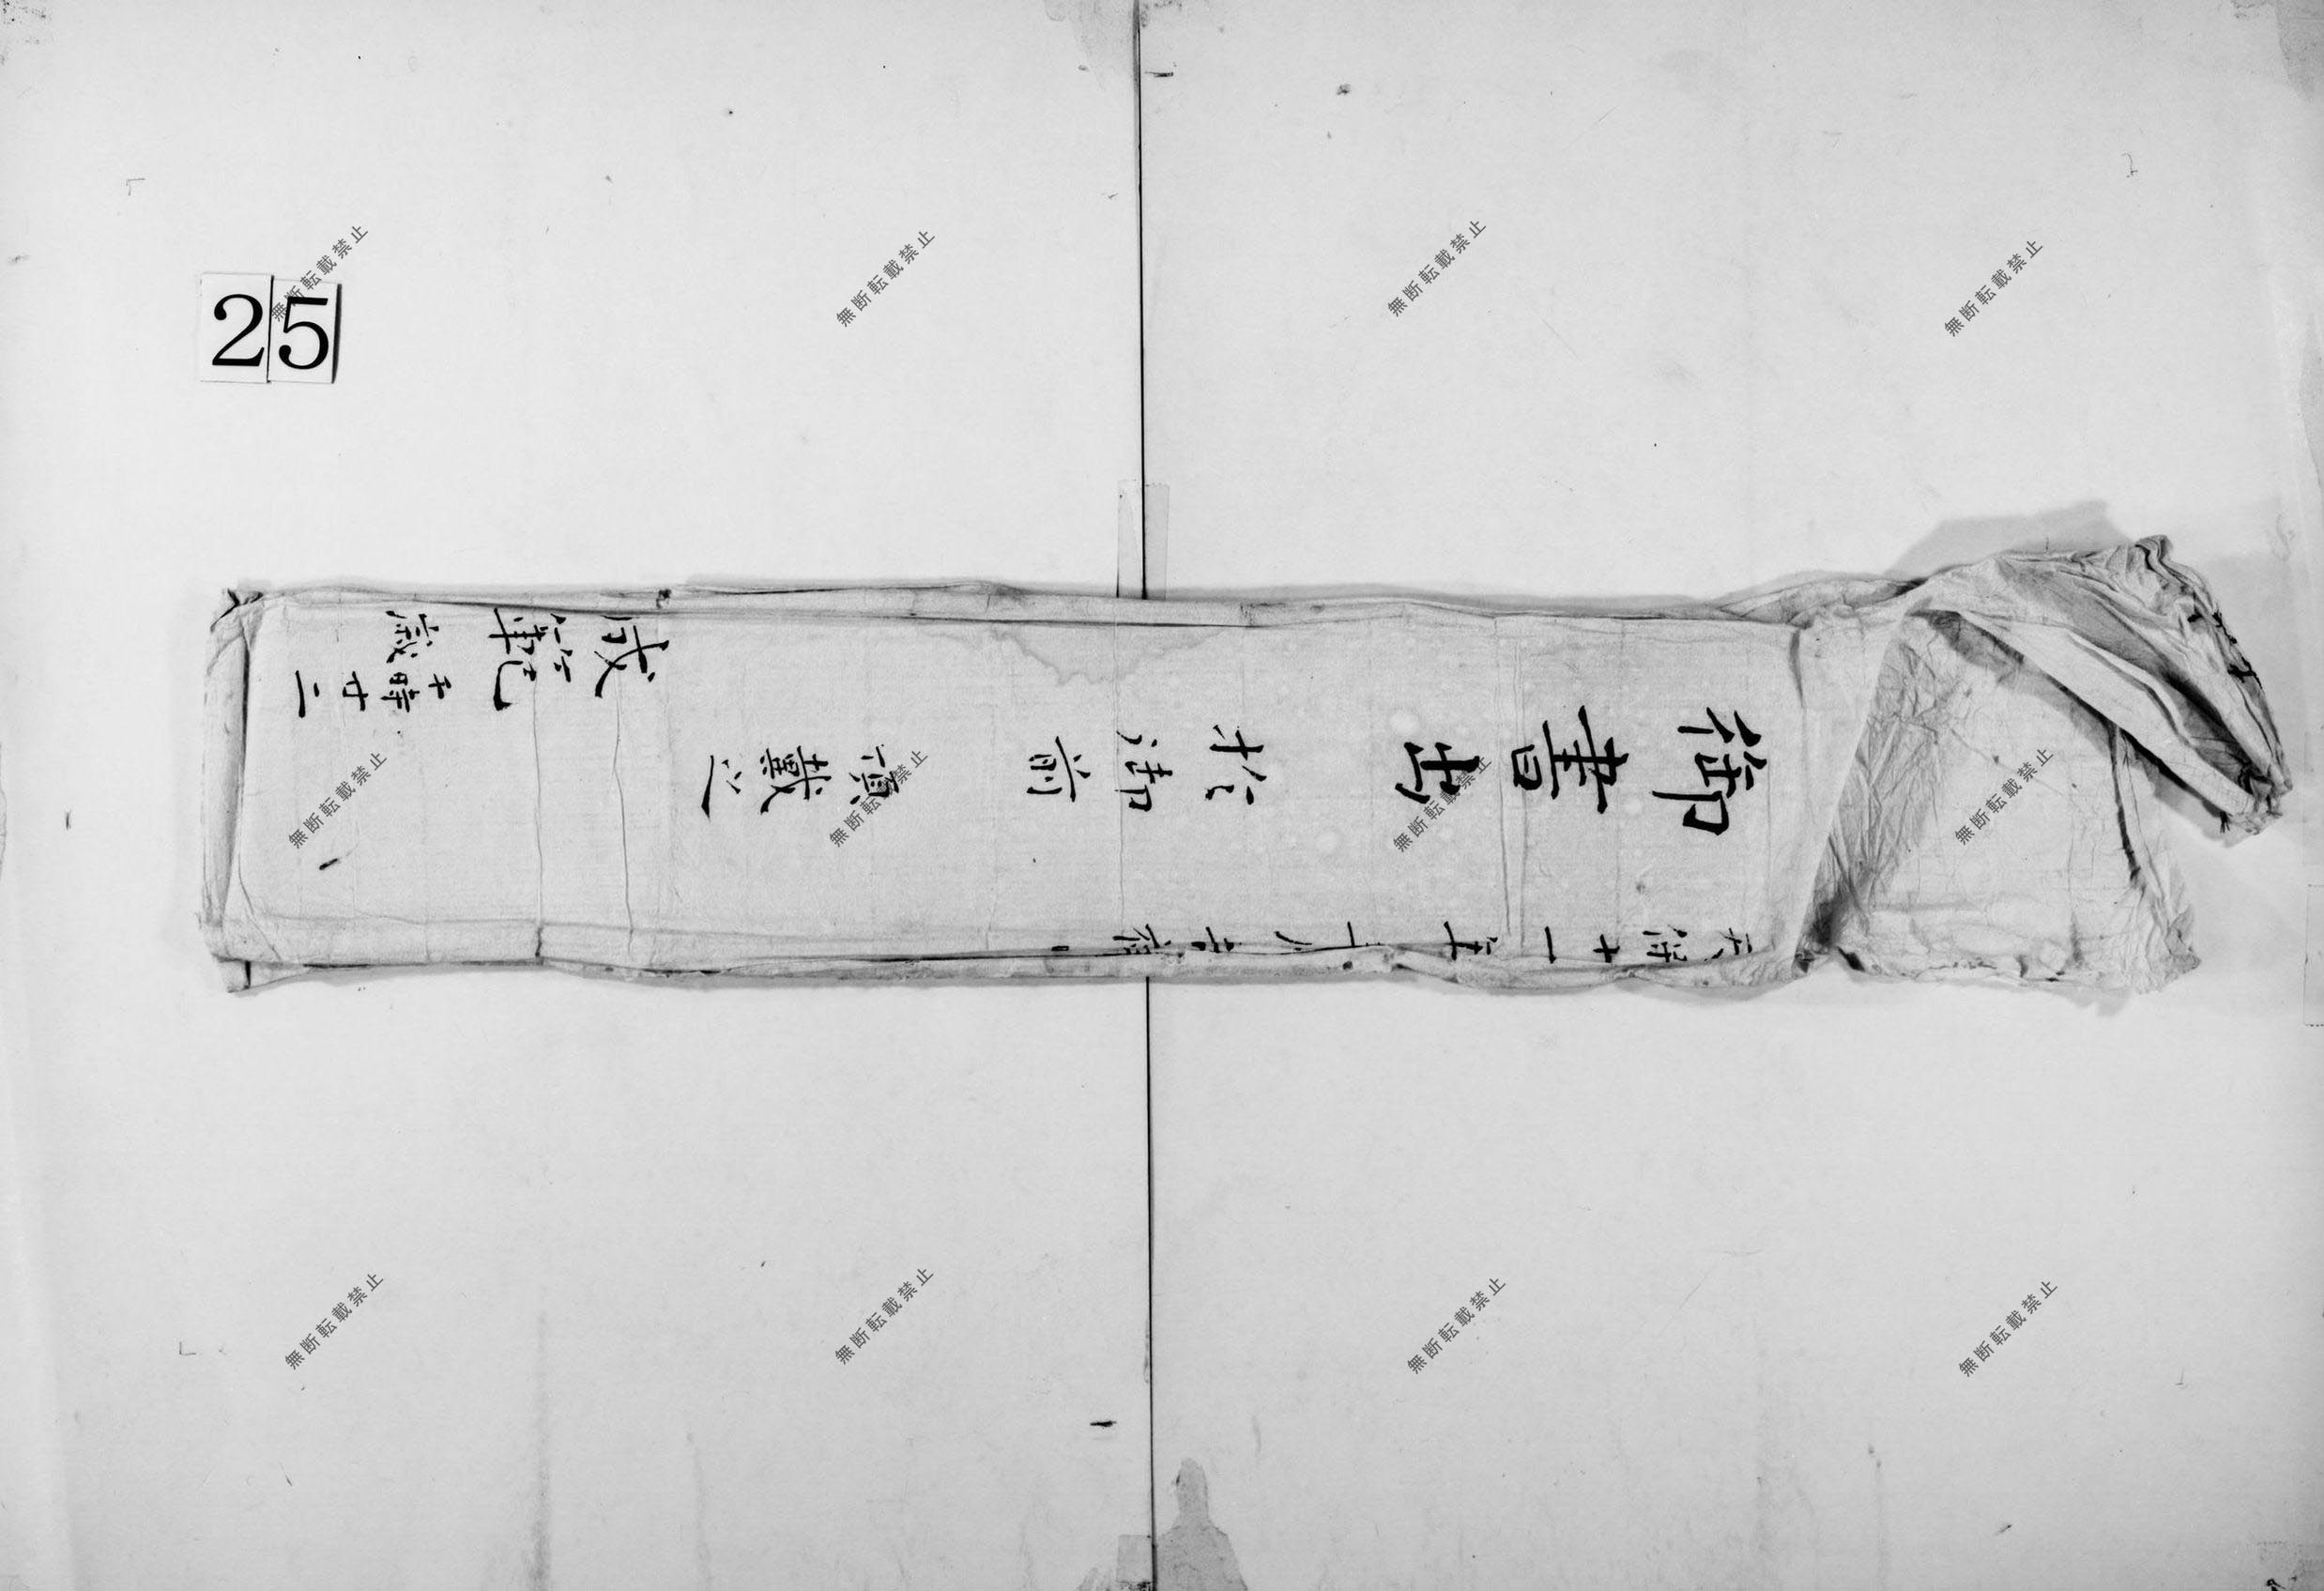 25
天保十一年
御書出
於御前
頂戴之
成範
于時廿二
歳
無断転載禁止
無断転載禁止
無断転載禁止
無断転載禁止
無断転載禁止
無断転載禁止
無断転載禁止
無断転載禁止
無断転載禁止
無断転載禁止
無断転載禁止
無断転載禁止